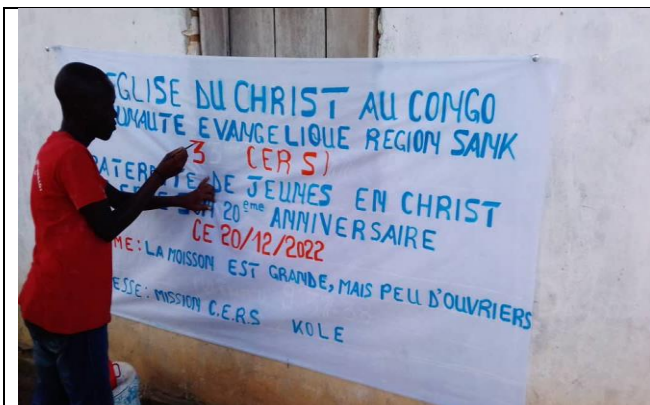 EGLISE DU CHRIST AU CONGO
UNAUTE EVANGELIQUE REGION SANK
3 (ERS)
RATERNITE DE JEUNES EN CHRIST
SON 20ème ANNIVERSAIRE
CE 20/12/2022
ME: LA MOISSON EST GRANDE, MAIS PEU D'OUVRIERS
ESSE: MISSION C.E.R.S KOLE